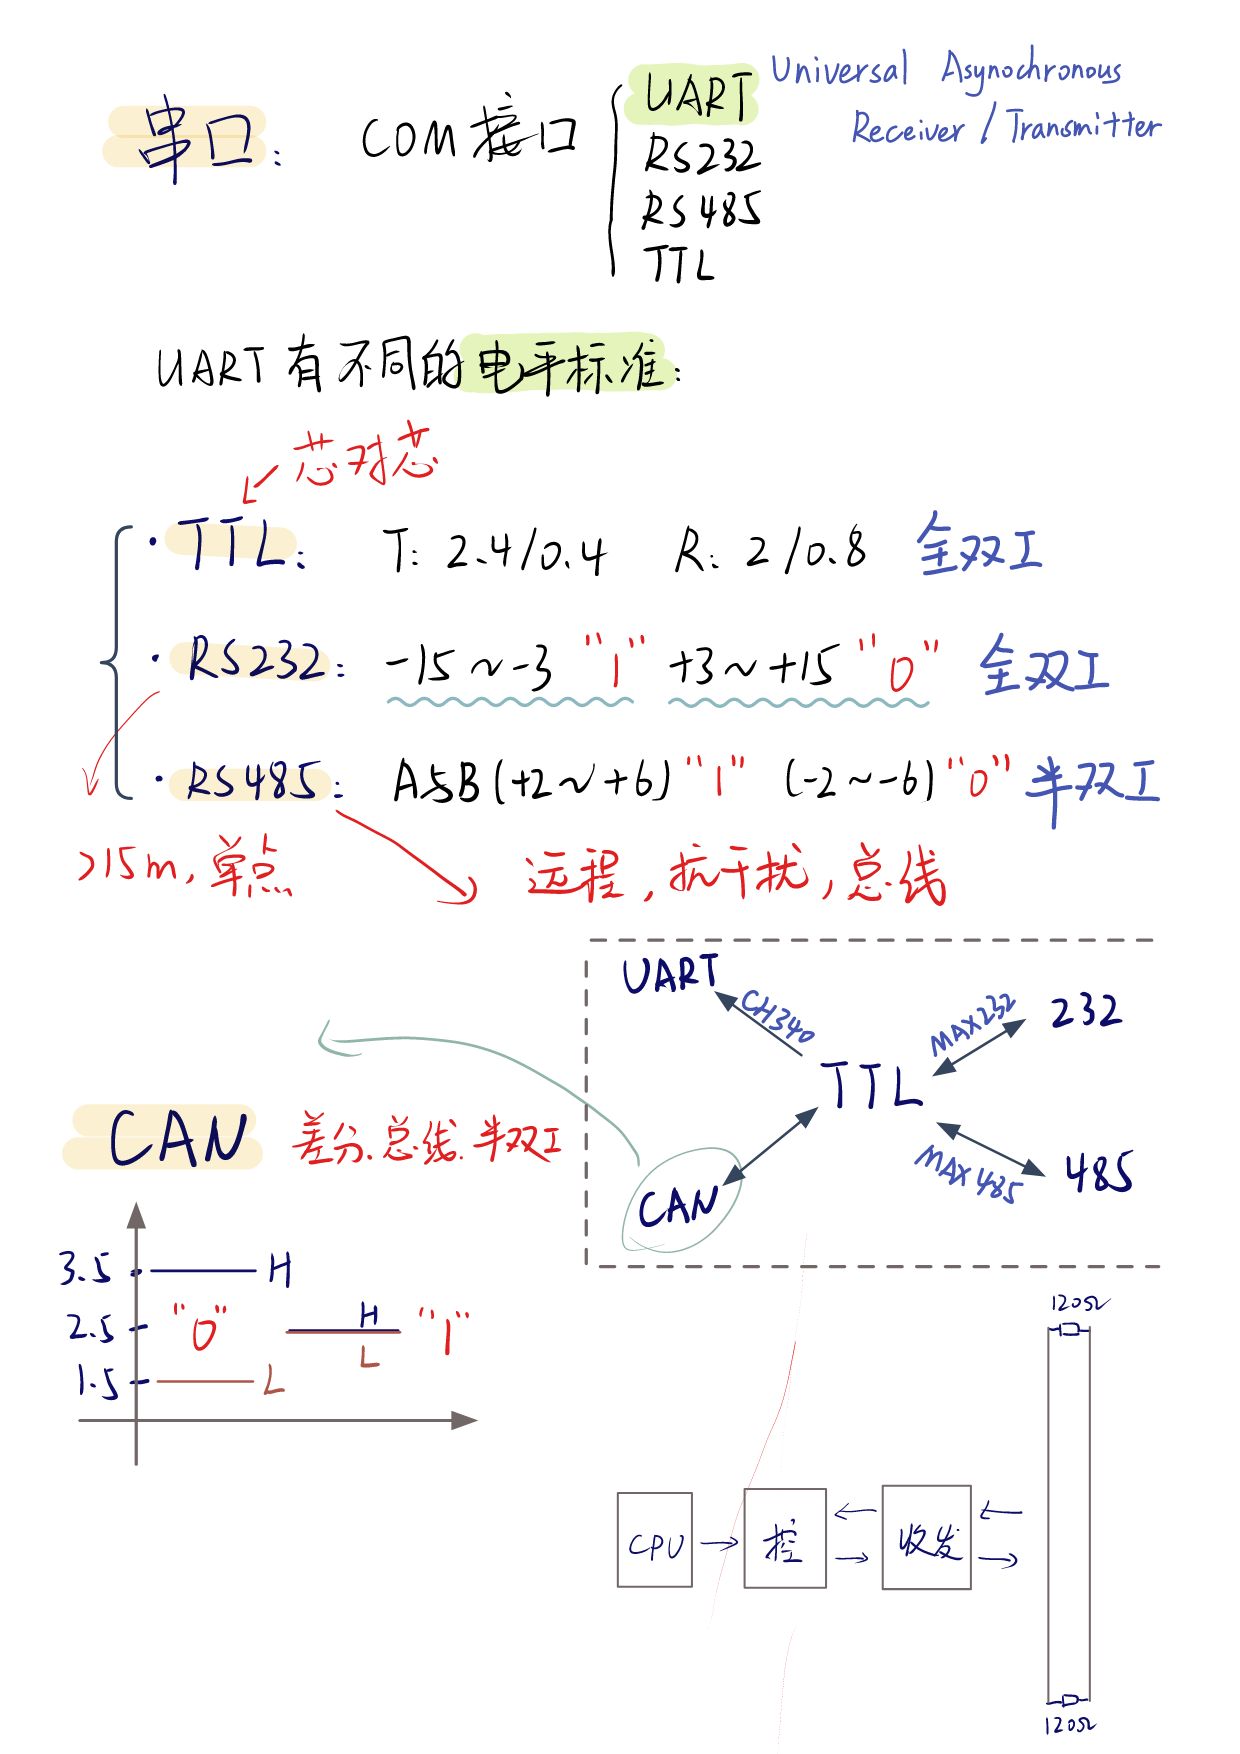 串口： COM接口
UART
RS232
RS485
TTL
Universal Asynochronous
Receiver / Transmitter
UART有不同的电平标准：
芯对芯
·TTL： T: 2.4/0.4 R: 2/0.8 全双工
·RS232： -15~-3 "1" +3~+15 "0" 全双工
·RS485： A与B(+2~+6) "1" (-2~-6) "0" 半双工
>15m, 单点
远程, 抗干扰, 总线
UART
CH340
MAX232
232
TTL
MAX485
485
CAN
CAN 差分.总线.半双工
3.5 H
2.5 "0" H "1"
L
1.5 L
120Ω
CPU 控 收发
120Ω